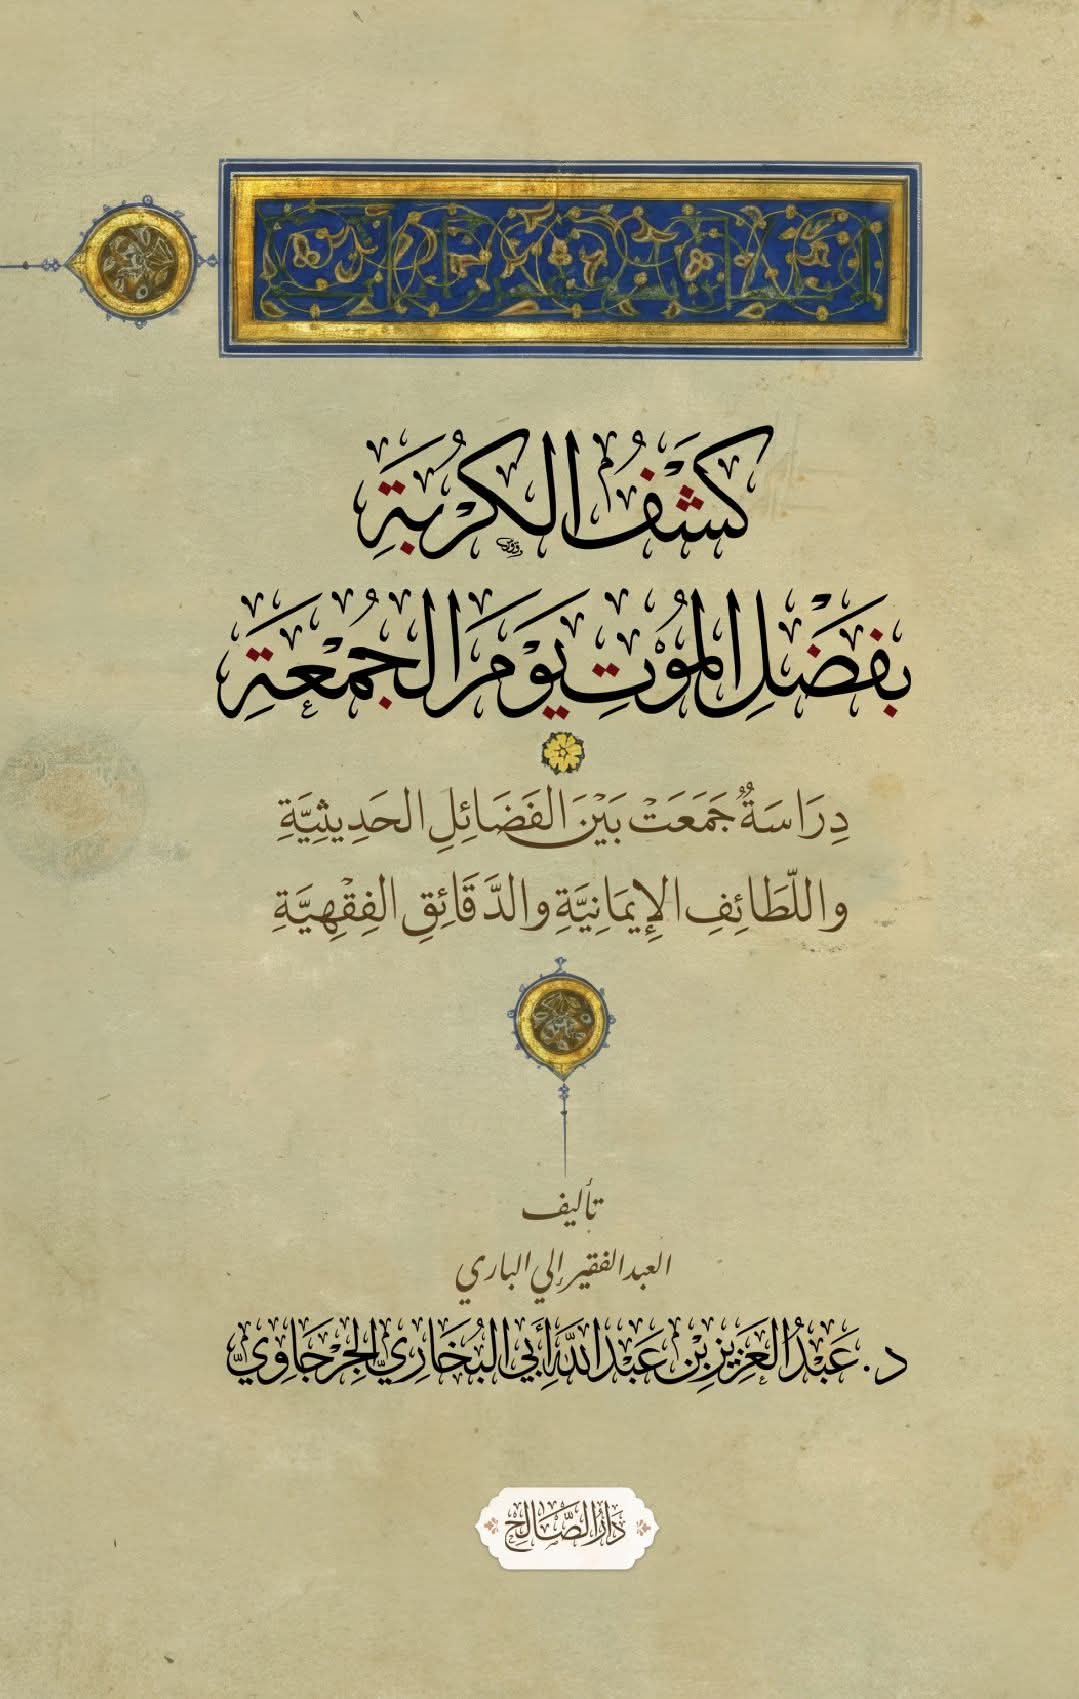 كَشْفُ الكُرْبَةِ
بِفَضْلِ المُوْتِ يَوْمَ الجُمْعَةِ
دِرَاسَةٌ جَمَعَتْ بَيْنَ الفَضَائِلِ الحَدِيثِيَّةِ
واللَّطَائِفِ الإِيمَانِيَّةِ والدَّقَائِقِ الفِقْهِيَّةِ
تأليف
العبد الفقير إلي الباري
د. عَبْدُ العَزِيزِ بْنِ عَبْدِ اللَّهِ أَبِي البُخَارِيِّ الجِرْجَاوِيِّ
دَارُ الصَّالِحِ